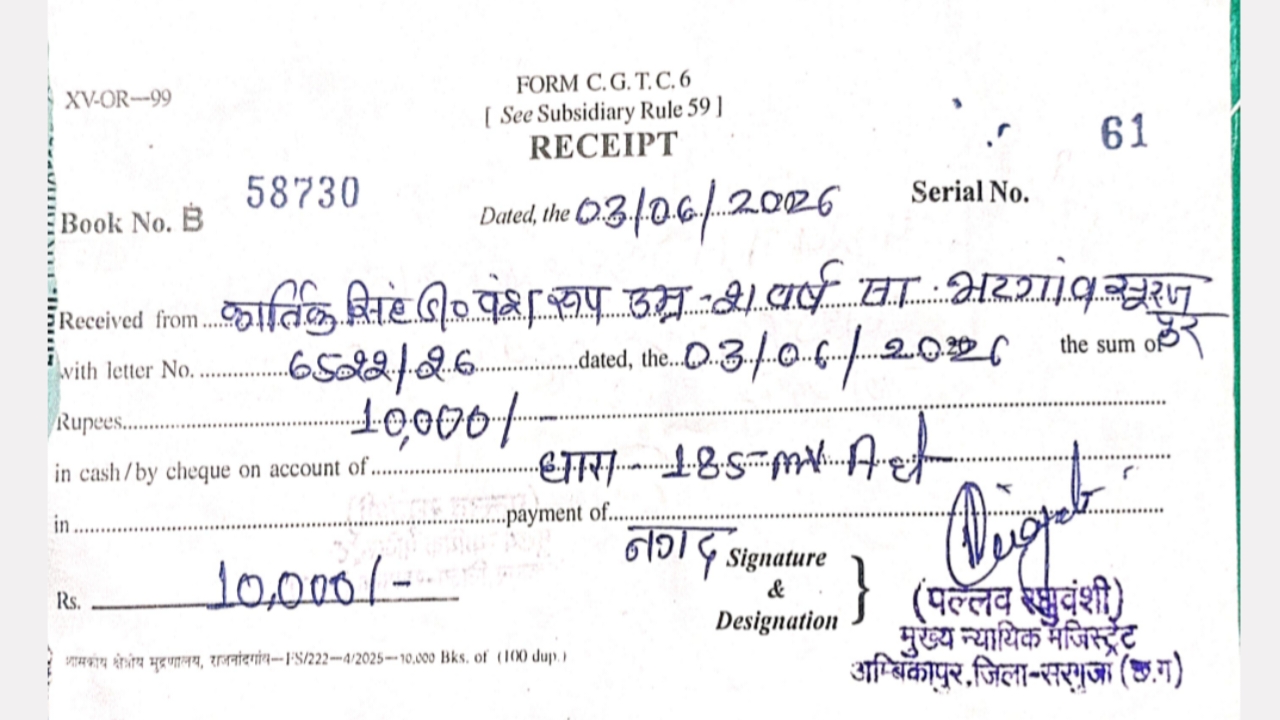 XV-OR—99
FORM C.G.T.C. 6
[ See Subsidiary Rule 59 ]
RECEIPT
61
58730
Book No. B
Dated, the 03/06/2026
Serial No.
Received from कार्तिक सिंह उम्र - 21 वर्ष सा. भटगांव सूरजपुर
with letter No. 6522/26 dated, the 03/06/2026 the sum of
Rupees 10,000/-
in cash/by cheque on account of धारा - 185 - MV Act
in payment of
नगद
Signature
&
Designation
Rs. 10,000/-
(पल्लव रघुवंशी)
मुख्य न्यायिक मजिस्ट्रेट
अम्बिकापुर, जिला-सरगुजा (छ.ग)
शासकीय क्षेत्रीय मुद्रणालय, राजनांदगांव—FS/222—4/2025—10,000 Bks. of (100 dup.)